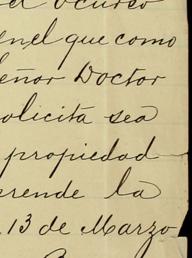 el ocurso
en el que como
Señor Doctor
solicita sea
propiedad
erende la
13 de Marzo